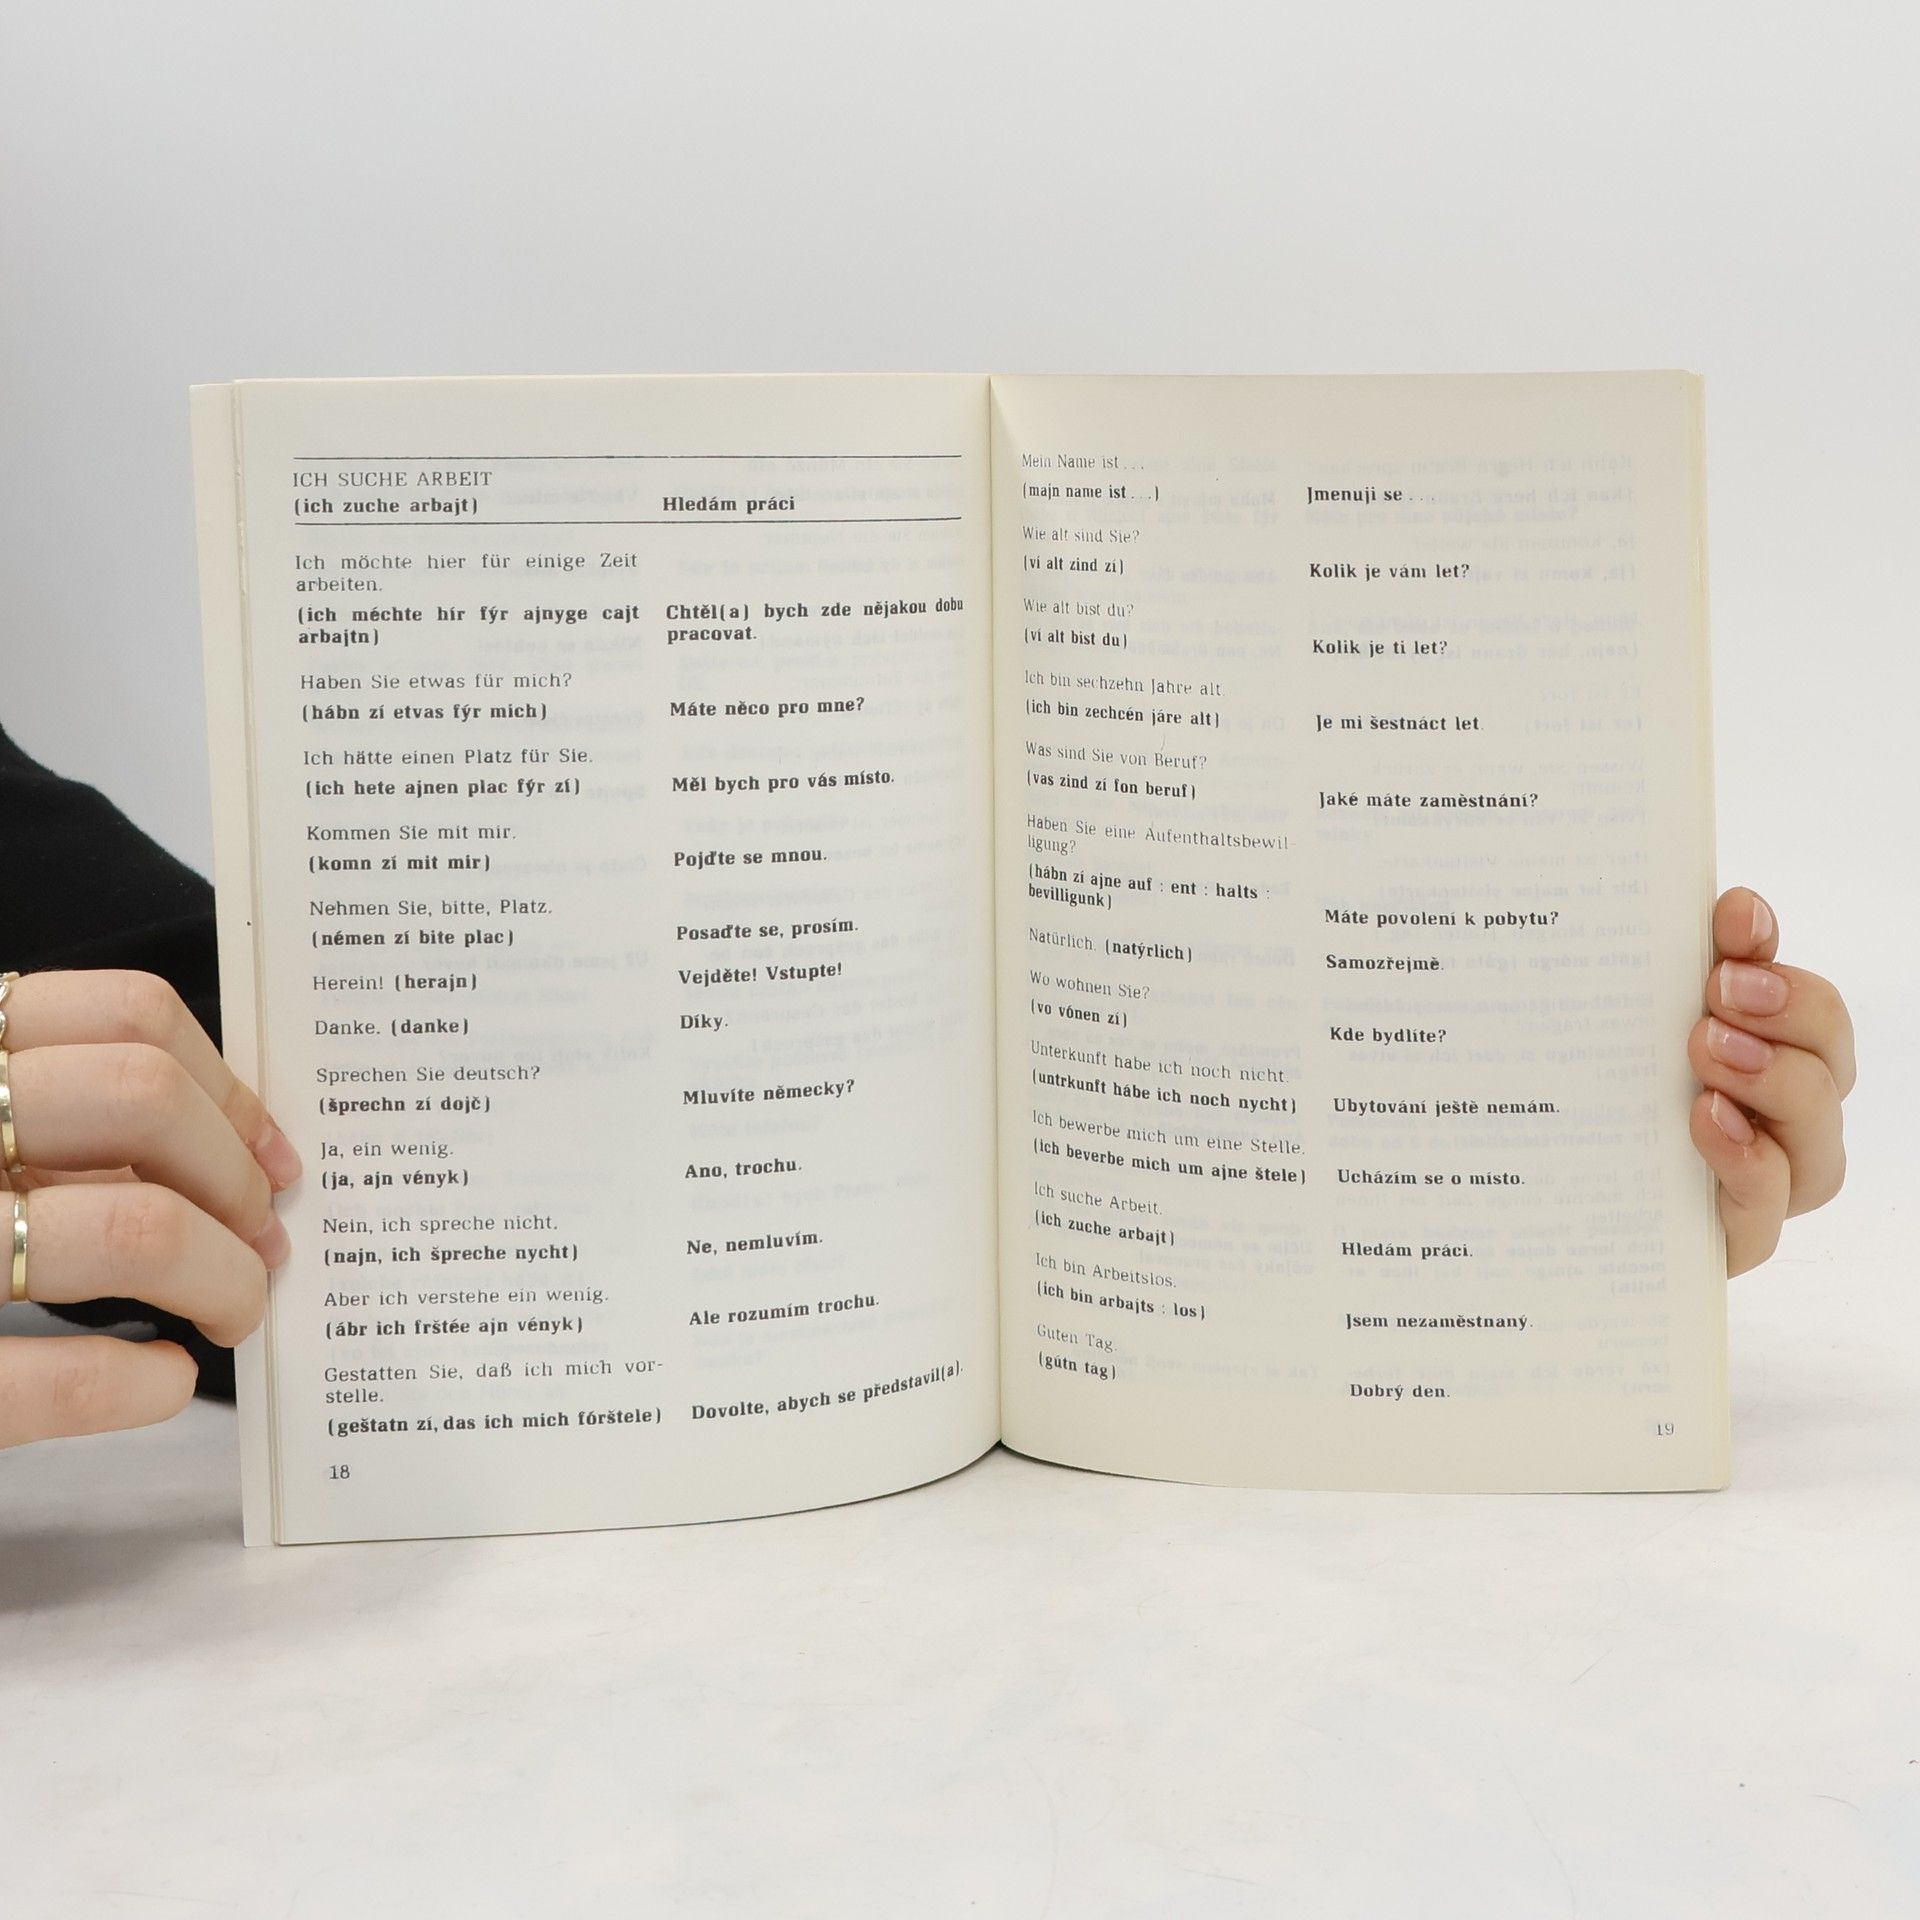 ICH SUCHE ARBEIT
(ich zuche arbajt) Hledám práci
Ich möchte hier für einige Zeit
arbeiten.
(ich méchte hír fýr ajnyge cajt Chtěl(a) bych zde nějakou dobu
arbajtn) pracovat.
Haben Sie etwas für mich?
(hábn zí etvas fýr mich) Máte něco pro mne?
Ich hätte einen Platz für Sie.
(ich hete ajnen plac fýr zí) Měl bych pro vás místo.
Kommen Sie mit mir.
(komn zí mit mir) Pojďte se mnou.
Nehmen Sie, bitte, Platz.
(némen zí bite plac) Posaďte se, prosím.
Herein! (herajn) Vejděte! Vstupte!
Danke. (danke) Díky.
Sprechen Sie deutsch?
(šprechn zí dojč) Mluvíte německy?
Ja, ein wenig.
(ja, ajn vényk) Ano, trochu.
Nein, ich spreche nicht.
(najn, ich špreche nycht) Ne, nemluvím.
Aber ich verstehe ein wenig.
(ábr ich frštée ajn vényk) Ale rozumím trochu.
Gestatten Sie, daß ich mich vor-
stelle.
(geštatn zí, das ich mich fórštele) Dovolte, abych se představil(a).
18
Mein Name ist . . .
(majn name ist . . .) Jmenuji se . .
Wie alt sind Sie?
(ví alt zind zí) Kolik je vám let?
Wie alt bist du?
(ví alt bist du) Kolik je ti let?
Ich bin sechzehn Jahre alt.
(ich bin zechcén járe alt) Je mi šestnáct let.
Was sind Sie von Beruf?
(vas zind zí fon beruf) Jaké máte zaměstnání?
Haben Sie eine Aufenthaltsbewil-
ligung?
(hábn zí ajne auf : ent : halts :
bevilligunk) Máte povolení k pobytu?
Natürlich. (natýrlich) Samozřejmě.
Wo wohnen Sie?
(vo vónen zí) Kde bydlíte?
Unterkunft habe ich noch nicht.
(untrkunft hábe ich noch nycht) Ubytování ještě nemám.
Ich bewerbe mich um eine Stelle.
(ich beverbe mich um ajne štele) Ucházím se o místo.
Ich suche Arbeit.
(ich zuche arbajt) Hledám práci.
Ich bin Arbeitslos.
(ich bin arbajts : los) Jsem nezaměstnaný.
Guten Tag.
(gútn tag) Dobrý den.
19